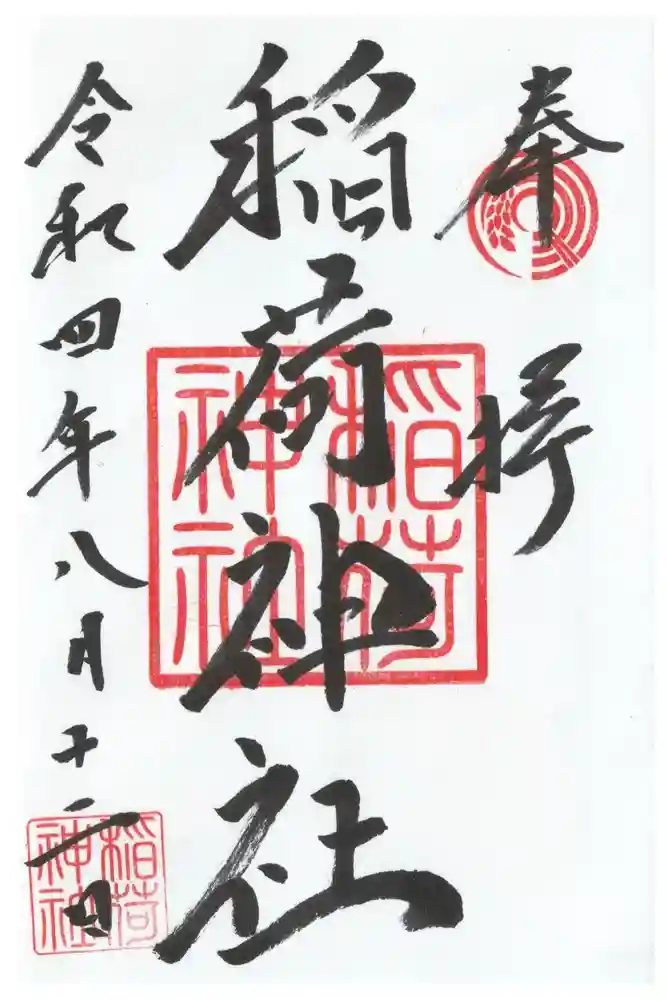 奉拝
稲荷神社
令和四年八月十二日
稲荷神社
稲荷神社